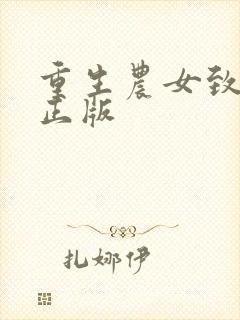 重生农女致
正版
扎娜伊